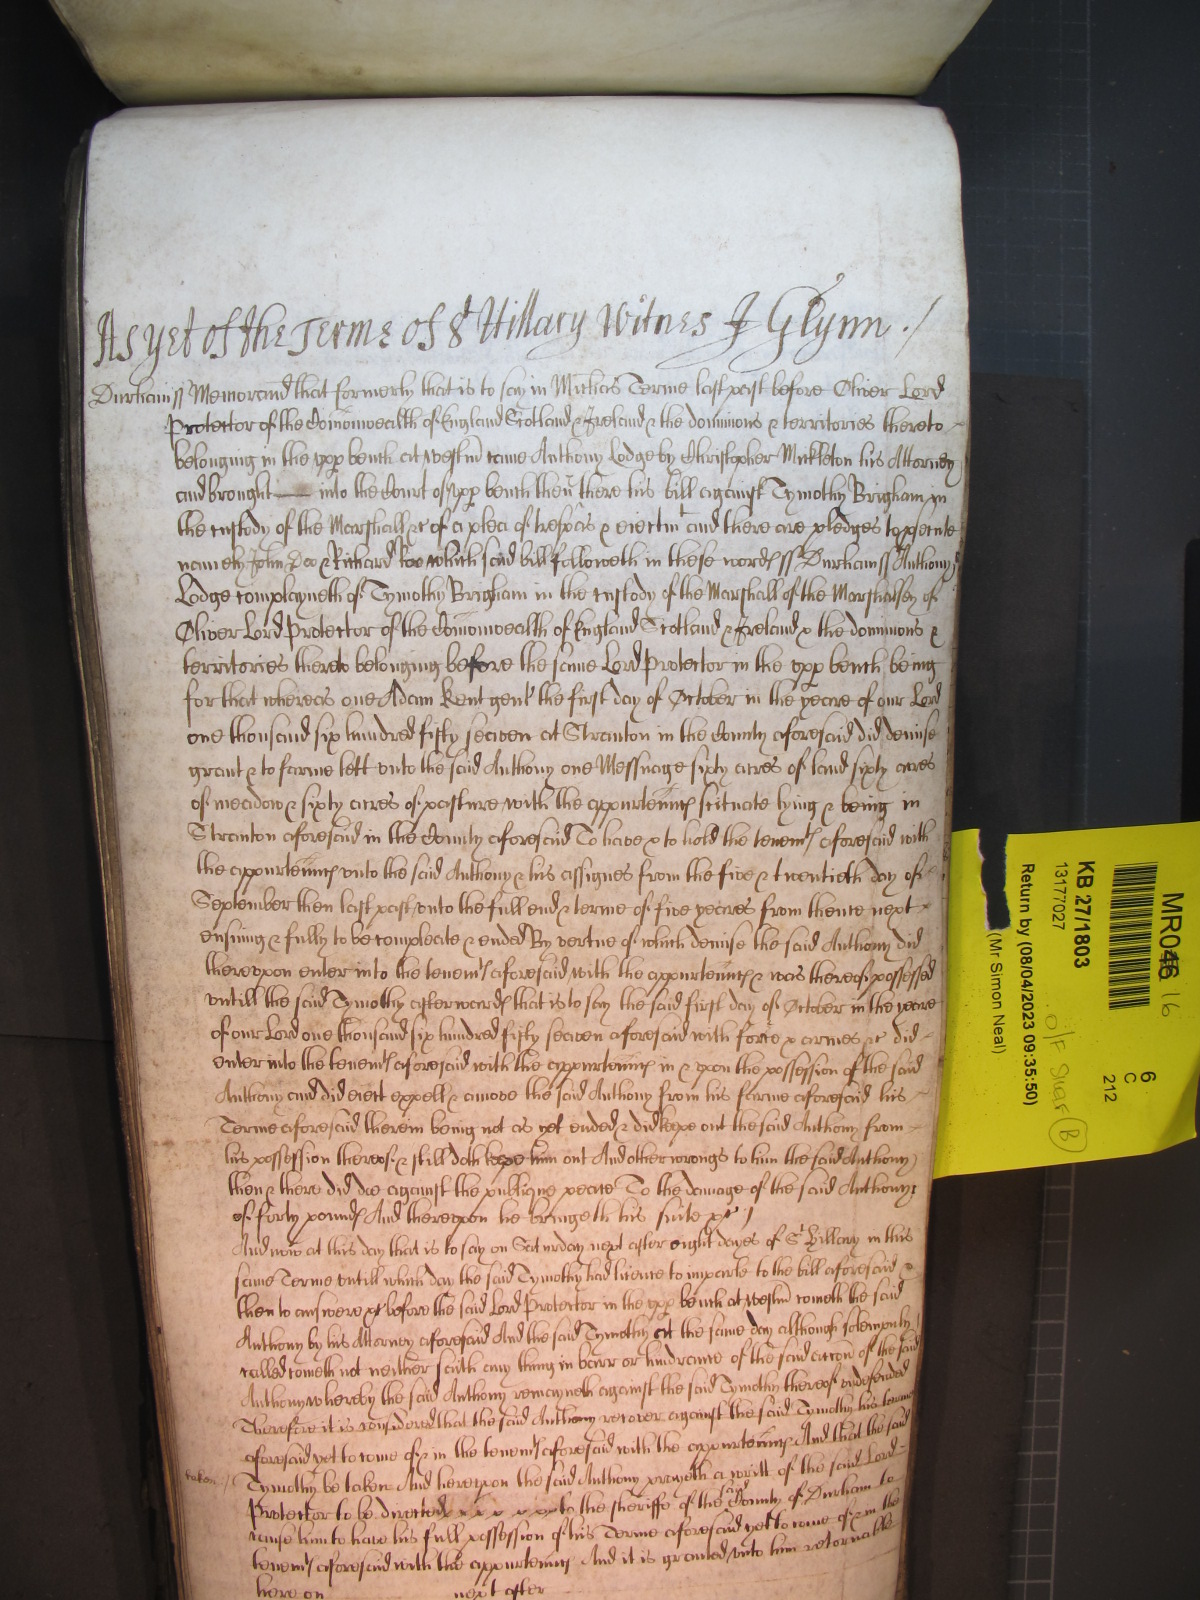 As yet of the Terme of St Hillary Witnes J Glynn ./
Durham ss Memorand that formerly that is to say in Michas Terme last past before Oliver Lord
Protector of the Comonwealth of England Scotland & Ireland & the dominions & territories thereto
belonging in the upp bench at Westm came Anthony Lodge by Christopher Mickleton his Attorney
and brought —— into the Court of upp bench then there his bill against Tymothy Brigham in
the custody of the Marshall &c of a plea of trespas & eiectm and there are pledges to psecute
namely John Doo & Richard Roo which said bill followeth in these words ss Durham ss Anthony
Lodge complayneth of Tymothy Brigham in the custody of the Marshall of the Marshalsey of
Oliver Lord Protector of the Comonwealth of England Scotland & Ireland & the dominions &
territories thereto belonging before the same Lord Protector in the upp bench being
for that whereas one Adam Kent gent the first day of October in the yeare of our Lord
one thousand six hundred fifty seaven at Stranton in the County aforesaid did demise
grant & to farme lett unto the said Anthony one Messuage sixty acres of land sixty acres
of meadow & sixty acres of pasture with the appurtenncs scituate lying & being in
Stranton aforesaid in the County aforesaid To have & to hold the tenemts aforesaid with
the appurtenncs unto the said Anthony & his assignes from the five & twentieth day of
September then last past unto the full end & terme of five yeares from thence next
ensuing & fully to be compleate & ended By vertue of which demise the said Anthony did
thereupon enter into the tenemts aforesaid with the appurtenncs & was thereof possessed
untill the said Tymothy afterwards that is to say the said first day of October in the yeare
of our Lord one thousand six hundred fifty seaven aforesaid with force & armes &c did
enter into the tenemts aforesaid with the appurtenncs in & upon the possession of the said
Anthony and did eiect expell & amove the said Anthony from his farme aforesaid his
Terme aforesaid therein being not as yet ended & did kepe out the said Anthony from
his possession thereof & still doth kepe him out And other wrongs to him the said Anthony
then & there did doe against the publique peace To the damage of the said Anthony
of forty pounds And thereupon he bringeth his suite &c
And now at this day that is to say on Saturday next after eight dayes of St Hillary in this
same Terme untill which day the said Tymothy had licence to imparle to the bill aforesaid &
then to answere &c before the said Lord Protector in the upp bench at Westm cometh the said
Anthony by his Attorney aforesaid And the said Tymothy at the same day although solempnly
called cometh not neither saith any thing in barr or hindrance of the said accon of the said
Anthony whereby the said Anthony remayneth against the said Tymothy thereof undefended
Therefore it is considered that the said Anthony recover against the said Tymothy his terme
aforesaid yet to come of & in the tenemts aforesaid with the appurtenncs And that the said
taken /
Tymothy be taken And hereupon the said Anthony prayeth a writt of the said Lord
Protector to be directed to the sheriffe of the said County of Durham to
cause him to have his full possession of his Terme aforesaid yet to come of & in the
tenemts aforesaid with the appurtenncs And it is granted unto him retornable
here on next after
MR046 16
6
C
212
KB 27/1803
13177027
O/F
B
Return by (08/04/2023 09:35:50)
(Mr Simon Neal)